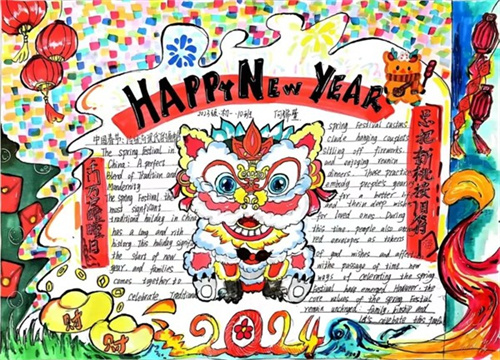 HAPPY NEW YEAR
The spring festival in
China: A perfect
Blend of Tradition and
Modernity
The spring Festival the
most significant
traditional holiday in China
has a long and rich
history. This holiday signifies
the start of new
year, and families
comes together to
celebrate Traditional
spring festival customs
clude hanging couplets
tting off fireworks
and enjoying reunion
dinners. Those practices
embody people's yearn
for a better
and their deep wish
for loved ones. During
this time people also
red envelopes as tokens
of good wishes and affect
withe passage of time, new
ways of celebrating the spring
festival have emerged However the
core values of the spring Festival
remain unchanged family kinship and
let's celebrate this
新年
千门万户曈曈日
总把新桃换旧符
财
财
2024